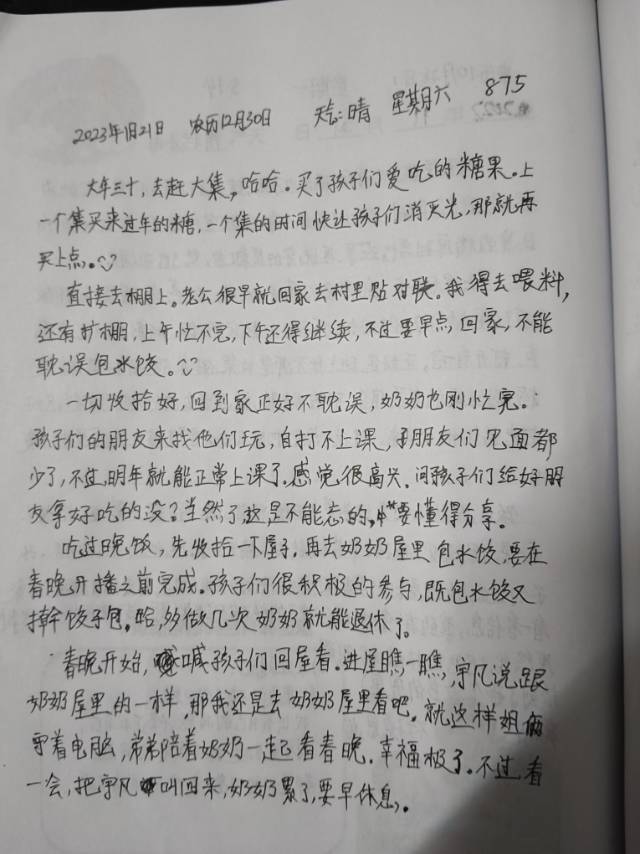 875
2023年1月21日 农历12月30日 天气:晴 星期六
大年三十,去赶大集,哈哈。买了孩子们爱吃的糖果。上
一个集买来过年的糖,一个集的时间快让孩子们消灭光,那就再
买上点。
直接去棚上。老公很早就回家去村里贴对联。我得去喂料,
还有扩棚,上午忙不完,下午还得继续,不过要早点回家,不能
耽误包水饺。
一切收拾好,回到家正好不耽误,奶奶也刚忙完。
孩子们的朋友来找他们玩,自打不上课,子朋友们见面都
少了,不过,明年就能正常上课了,感觉很高兴。问孩子们给好朋
友拿好吃的没?当然了这是不能忘的,要懂得分享。
吃过晚饭,先收拾一下屋子,再去奶奶屋里包水饺,要在
春晚开播之前完成。孩子们很积极的参与,既包水饺又
擀饺子包。哈,多做几次奶奶就能退休了。
春晚开始,喊孩子们回屋看。进屋瞧一瞧,宇凡说跟
奶奶屋里的一样,那我还是去奶奶屋里看吧。就这样姐
守着电脑,弟弟陪着奶奶一起看春晚。幸福极了。不过看
一会,把宇凡叫回来,奶奶累了,要早休息。